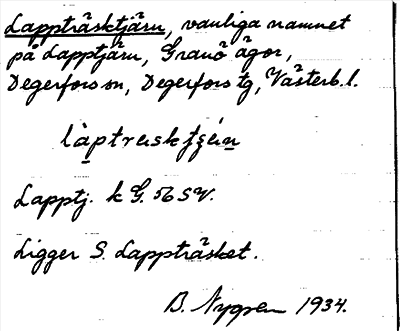 Lappträsktjärn, vanliga namnet
på Lapptjärn, Granö ägor,
Degerfors sn, Degerfors tg, Västerb. l.
Lapptj. k G. 56 SV.
Ligger S. Lappträsket.
B. Nygren 1934.